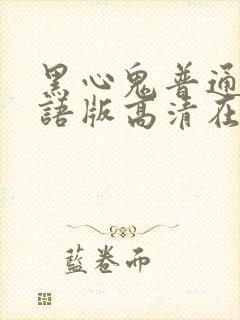 黑心鬼普通
語版高清在
藍卷而